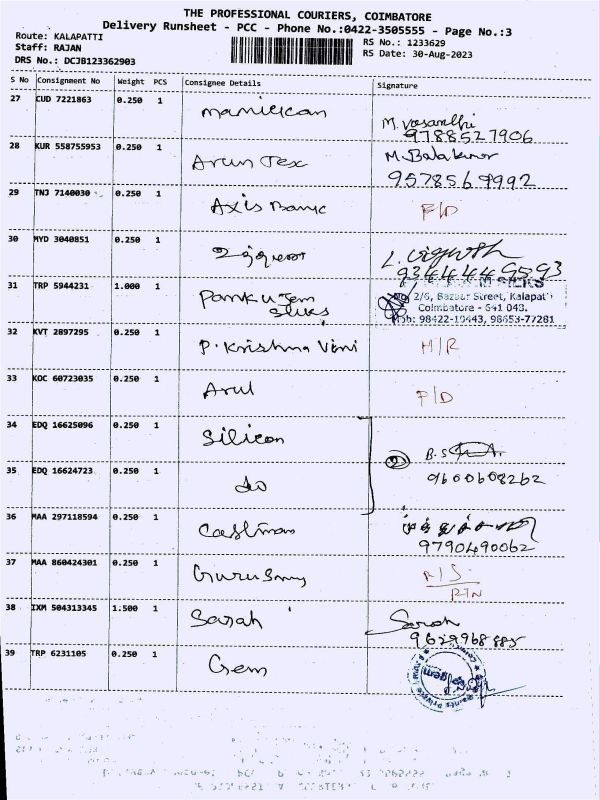 THE PROFESSIONAL COURIERS, COIMBATORE
Delivery Runsheet - PCC - Phone No.:0422-3505555 - Page No.:3
Route: KALAPATTI
Staff: RAJAN
DRS No.: DCJB123362903
RS No.: 1233629
RS Date: 30-Aug-2023
S No Consignment No Weight PCS Consignee Details Signature
27 CUD 7221863 0.250 1 manickam M. Vasanthi
9788527906
28 KUR 558755953 0.250 1 Arun Tex M. Balakumar
9578569992
29 TNJ 7140030 0.250 1 Axis Bank F/D
30 MYD 3040851 0.250 1 L. Vignesh
9344449593
31 TRP 5944231 1.000 1 Pankujam
Silks
SILKS
No 2/6, Bazaar Street, Kalapatti
Coimbatore - 641 048.
Mob: 98422-10443, 98653-77281
32 KVT 2897295 0.250 1 P. Krishna Veni H/R
33 KOC 60723035 0.250 1 Arul F/D
34 EDQ 16625096 0.250 1 Silicon
② B.S
35 EDQ 16624723 0.250 1 do 9600608262
36 MAA 297118594 0.250 1 Cashman
9790490062
37 MAA 860424301 0.250 1 Gurusamy R/S
RTN
38 IXM 504313345 1.500 1 Sarah Sarah
9629968885
39 TRP 6231105 0.250 1 Gem